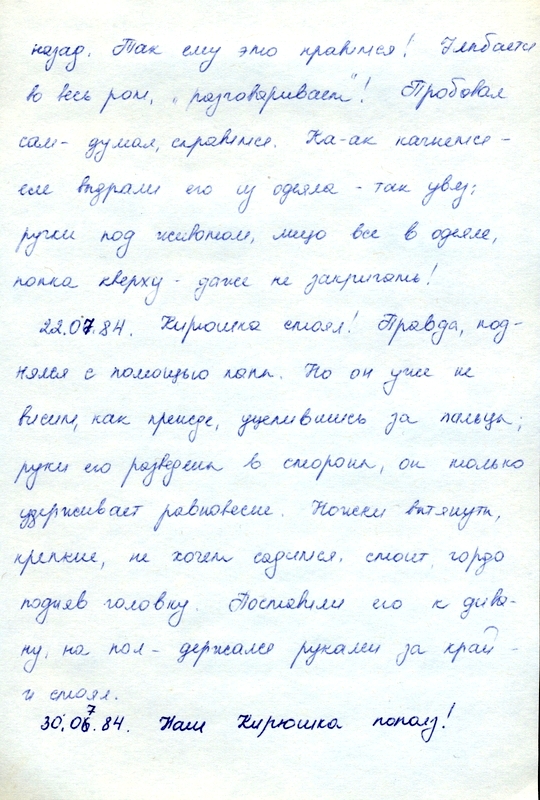 назад. Так ему это нравится! Улыбается
во весь рот, "разговаривает"! Пробовал
сам - думал, справится. Ка-ак начнется -
еле выдрали его из одеяла - так увяз;
ручки под животом, лицо все в одеяле,
попка кверху - даже не закричать!
22.07.84. Кирюшка стоял! Правда, под-
нялся с помощью папы. Но он уже не
висит, как прежде, уцепившись за пальцы;
руки его разведены в стороны, он только
удерживает равновесие. Ножки вытянуты,
крепкие, не хочет садиться, стоит, гордо
подняв головку. Поставили его к дива-
ну, на пол - держался руками за край -
и стоял.
30.07.84. Наш Кирюшка пополз!